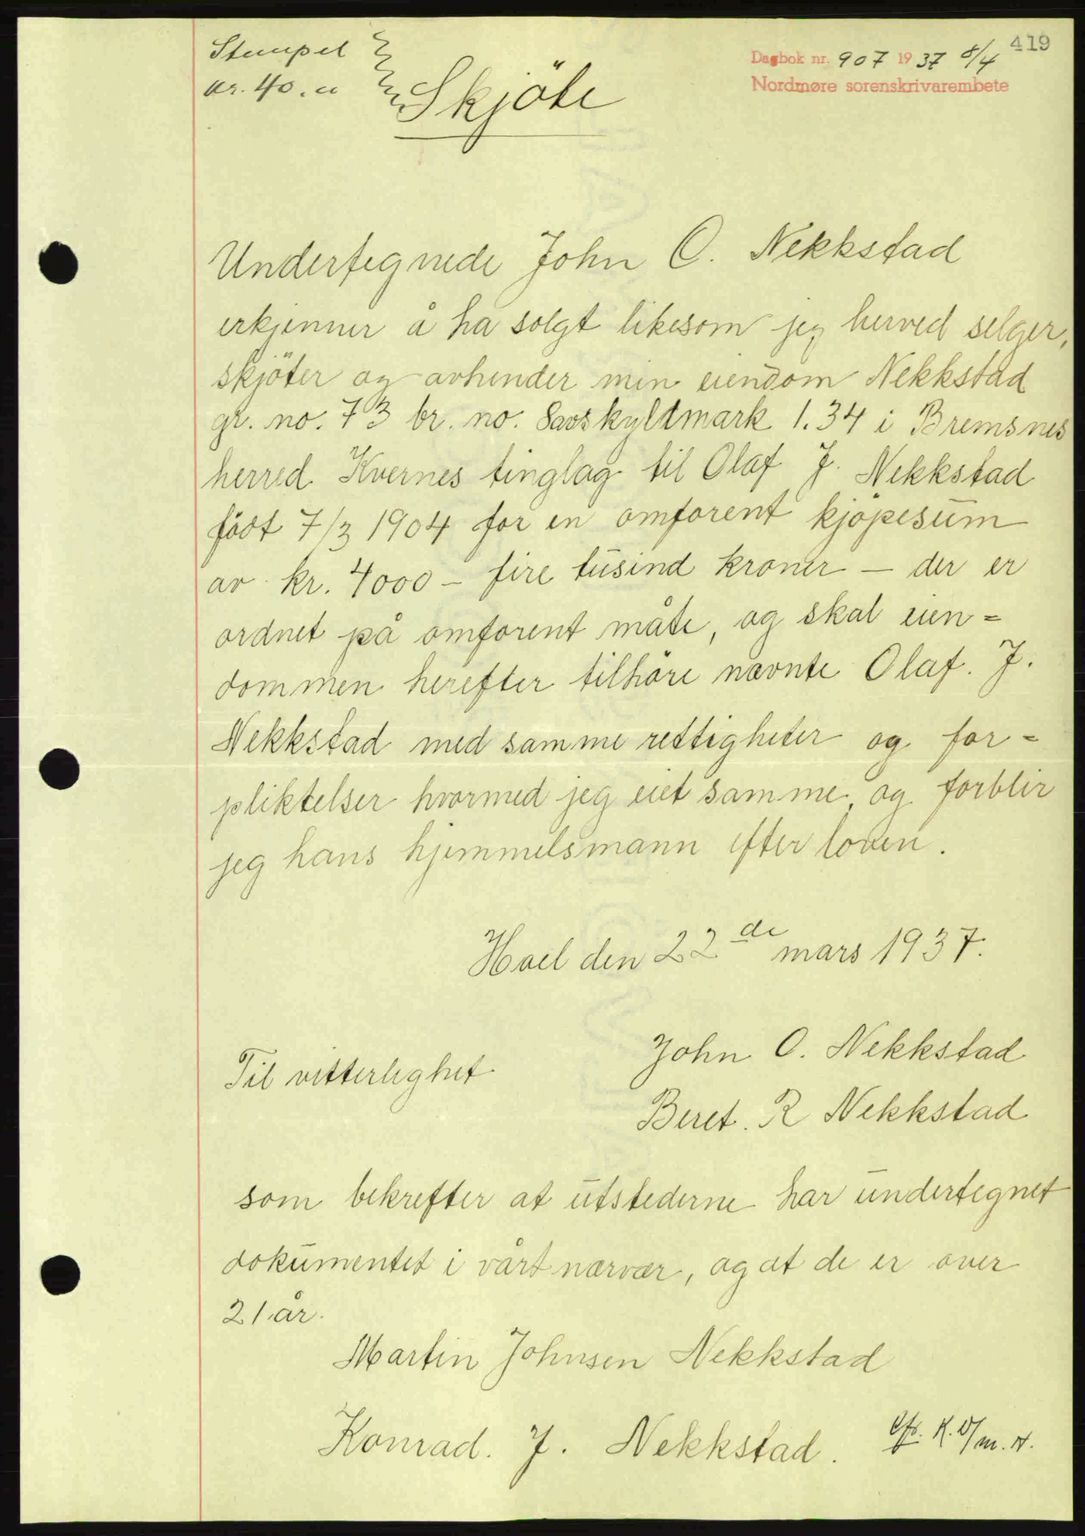 419
Stempel
kr. 40.
Skjöte
Dagbok nr. 907 1937 8/4
Nordmøre sorenskrivarembete
Undertegnede John O. Nekkstad
erkjenner å ha solgt likesom jeg herved selger,
skjöter og avhender min eiendom Nekkstad
gr. no. 73 br. no. 8 avskyldmark 1.34 i Bremsnes
herred Kvernes tinglag til Olaf J. Nekkstad
födt 7/3 1904 for en omforent kjöpesum
av kr. 4000 - fire tusind kroner - der er
ordnet på omforent måte, og skal eien=
dommen herefter tilhöre nævnte Olaf. J.
Nekkstad med samme rettigheter og for=
pliktelser hvormed jeg eiet samme, og forblir
jeg hans hjemmelsmann efter loven.
den 22de mars 1937.
John O. Nekkstad
Til vitterlighet
Beret. R Nekkstad
som bekrefter at utstederne har undertegnet
dokumentet i vårt nærvær, og at de er over
21 år.
Martin Johnsen Nekkstad
Konrad. J. Nekkstad.